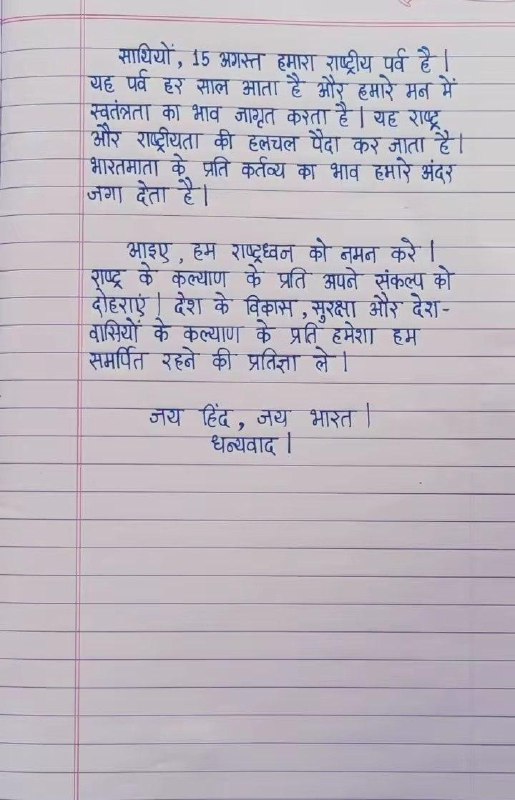 साथियों, 15 अगस्त हमारा राष्ट्रीय पर्व है |
यह पर्व हर साल आता है और हमारे मन में
स्वतंत्रता का भाव जागृत करता है | यह राष्ट्र
और राष्ट्रीयता की हलचल पैदा कर जाता है |
भारतमाता के प्रति कर्तव्य का भाव हमारे अंदर
जगा देता है |
आइए, हम राष्ट्रध्वन को नमन करे |
राष्ट्र के कल्याण के प्रति अपने संकल्प को
दोहराएं | देश के विकास, सुरक्षा और देश-
वासियों के कल्याण के प्रति हमेशा हम
समर्पित रहने की प्रतिज्ञा ले |
जय हिंद, जय भारत |
धन्यवाद |